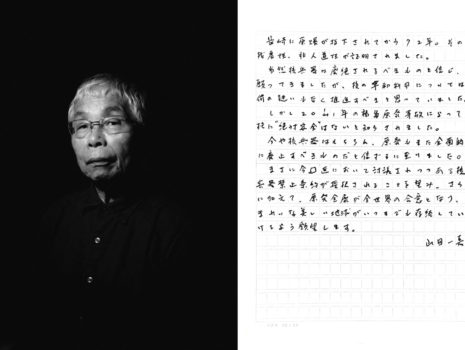 長崎に原爆が投下されてから72年。その
残虐性、非人道性が証明されました。
当然核兵器は廃絶されるべきものと信じ、
願ってきましたが、核の平和利用については
何の疑いもなく推進すべきと思っていました。
しかし2011年の福島原発事故によって
核に"絶対安全"はないと知らされました。
今や核兵器はもちろん、原発もまた全面的
に廃止すべきものだと信ずるに至りました。
まさに今国連において討議されつつある核
兵器禁止条約が採択されることを望み、さら
に加えて、原発全廃が全世界の合意となり、
きれいな美しい地球がいつまでも存続してい
けるよう願望します。
山田一美